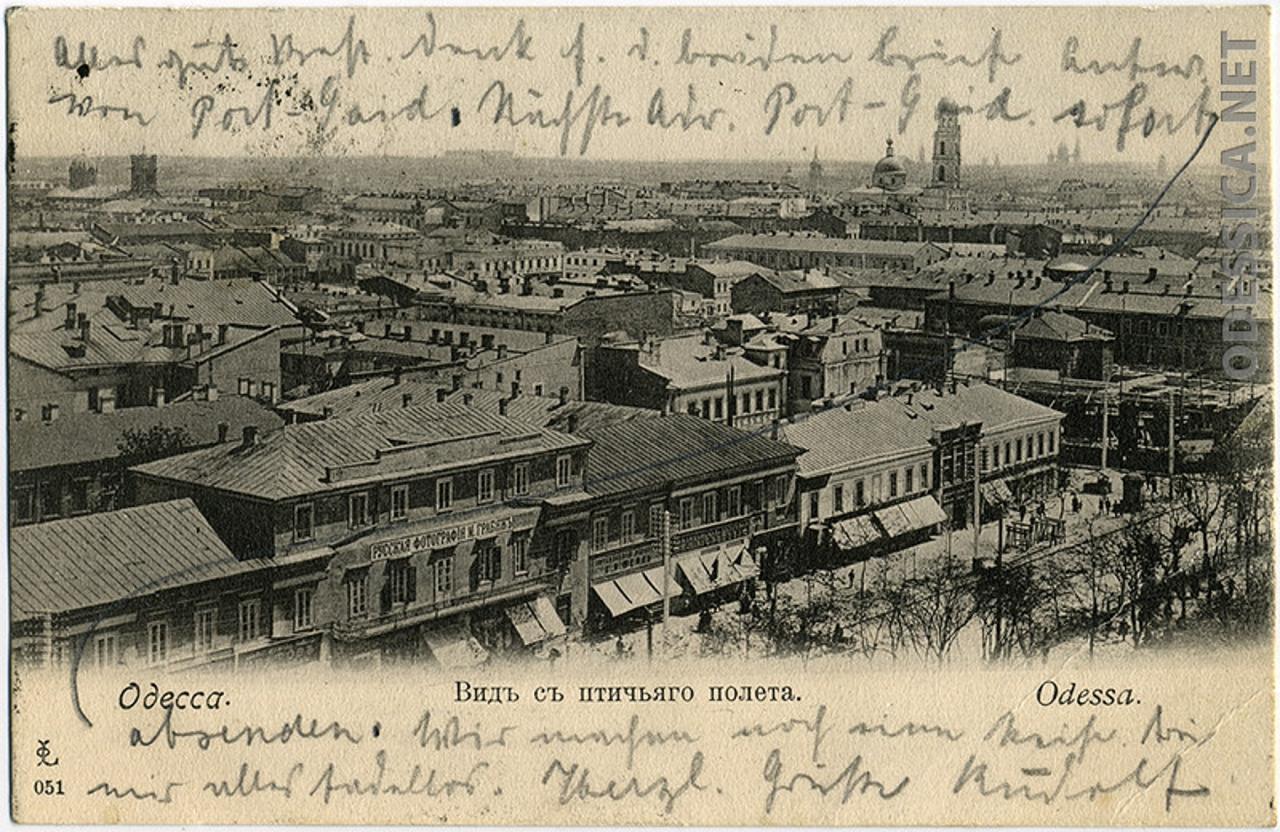 Alles gute Best. Dank f. d. beiden Briefe Antw.
von Port-Said. Nächste Adr. Port-Said. sofort
РУССКАЯ ФОТОГРАФІЯ М. ГРАБЯЖЪ
Одесса. Видъ съ птичьяго полета. Odessa.
absenden. Wir machen noch eine Reise. Bei
mir alles tadellos. Herzl. Grüße Rudolf
051
ODESSICA.NET